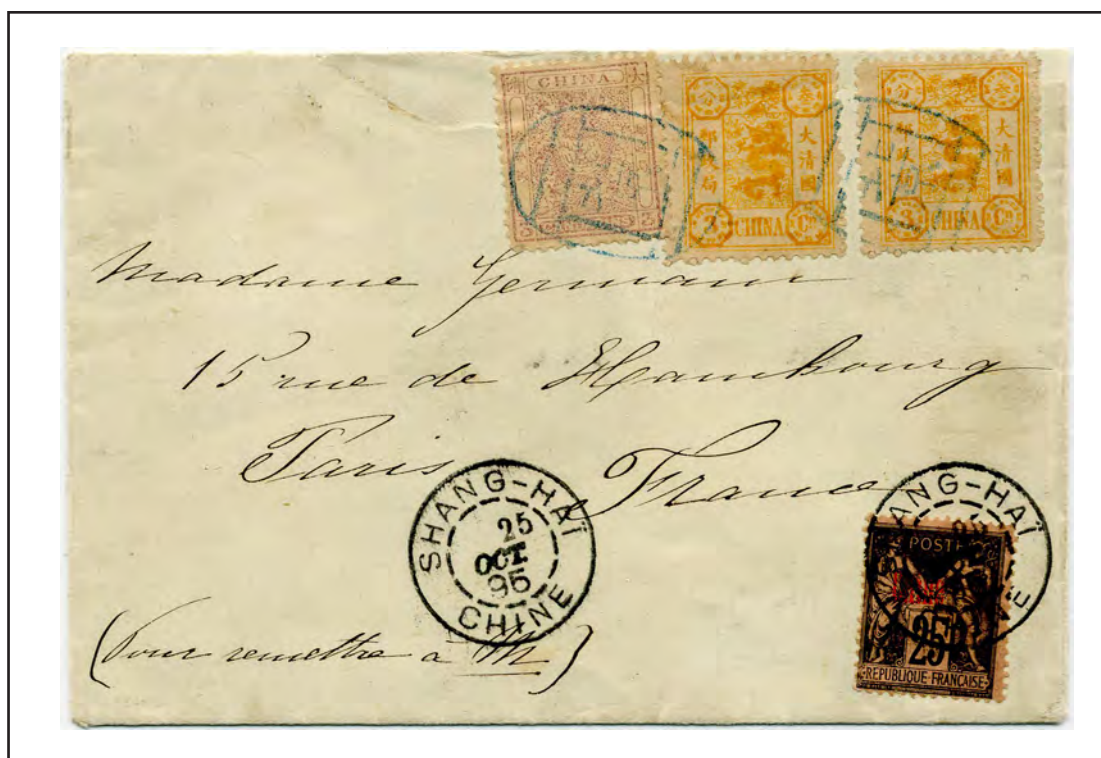 CHINA
大
3
分 叁
郵政局 大清國
3 CHINA Cn
分 叁
郵政局 大清國
3 CHINA Cn
Madame Germain
15 rue de Hambourg
Paris France
SHANG-HAÏ
25
OCT.
95
CHINE
ANG-HAÏ
POSTE
Chine
25
NE
REPUBLIQUE FRANÇAISE
(Pour remettre à M)